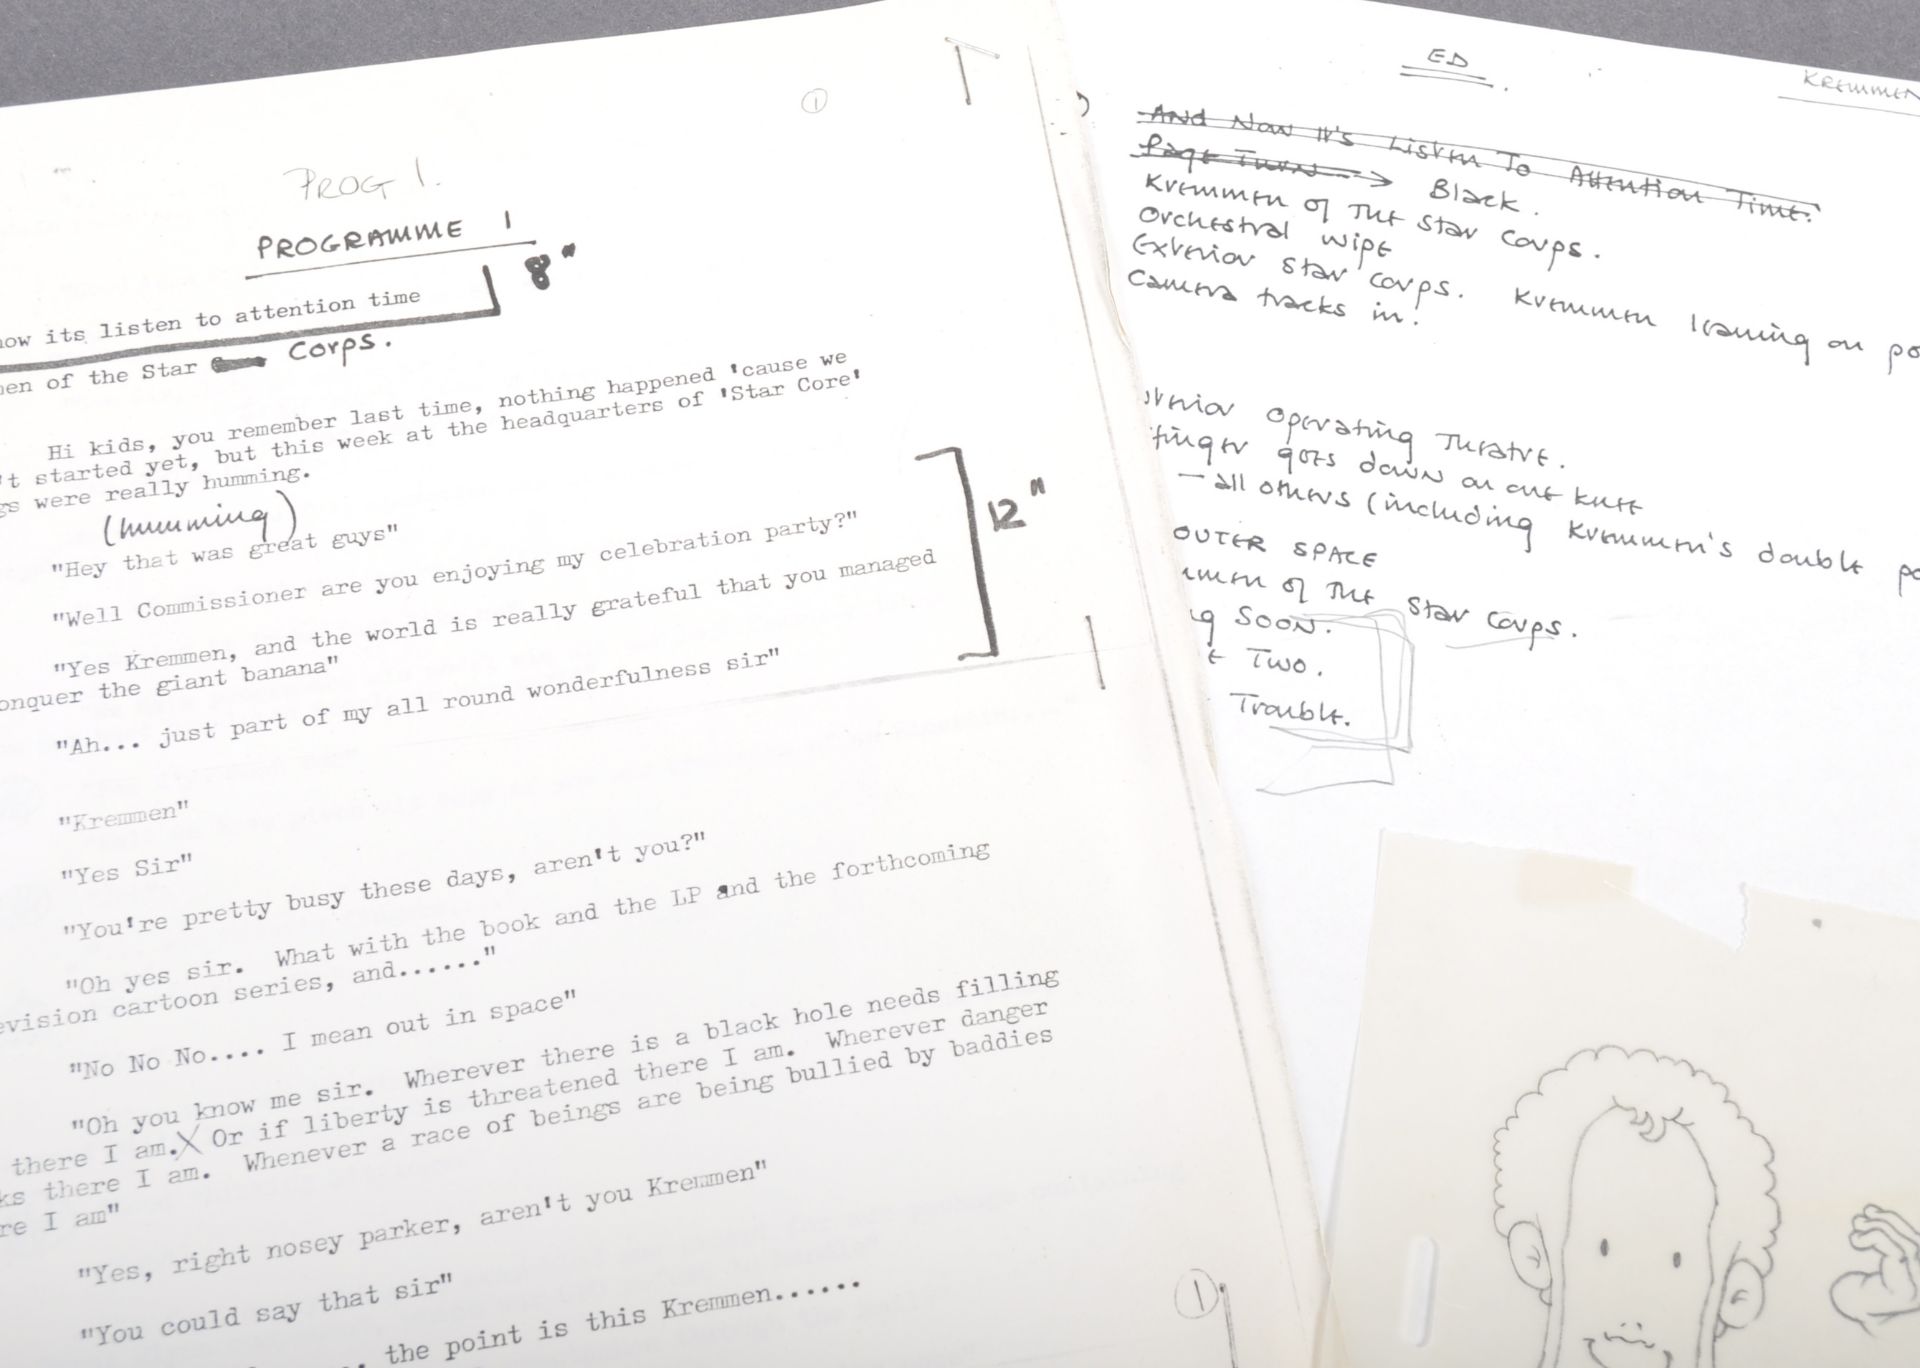 ①
PROG 1.
PROGRAMME 1
8"
now its listen to attention time
men of the Star Corps.
Hi kids, you remember last time, nothing happened 'cause we
't started yet, but this week at the headquarters of 'Star Core'
gs were really humming.
(humming)
"Hey that was great guys"
"Well Commissioner are you enjoying my celebration party?"
12"
"Yes Kremmen, and the world is really grateful that you managed
onquer the giant banana"
"Ah... just part of my all round wonderfulness sir"
"Kremmen"
"Yes Sir"
"You're pretty busy these days, aren't you?"
"Oh yes sir. What with the book and the LP and the forthcoming
evision cartoon series, and......"
"No No No.... I mean out in space"
"Oh you know me sir. Wherever there is a black hole needs filling
there I am. X Or if liberty is threatened there I am. Wherever danger
ks there I am. Whenever a race of beings are being bullied by baddies
re I am"
"Yes, right nosey parker, aren't you Kremmen"
"You could say that sir"
. the point is this Kremmen......
①
ED
KREMMEN
And Now It's Listen To Attention Time.
Page Turn → Black.
Kremmen of The Star Corps.
Orchestral wipe
Exterior Star Corps. Kremmen leaning on po
Camera tracks in.
erior Operating Theatre.
finger goes down on one knee
– all others (including Kremmen's double po
OUTER SPACE
mmen of The Star Corps.
ng Soon.
e Two.
Trouble.